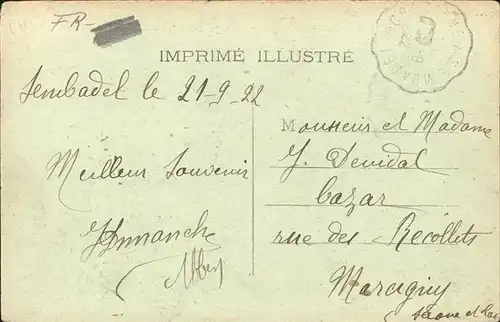 FR-
IMPRIMÉ ILLUSTRÉ
Sembadel le 21-9-22
Meilleur Souvenir
Monsieur et Madame
J. Devidal
bazar
rue des Récollets
Marcigny
Saone et Loire